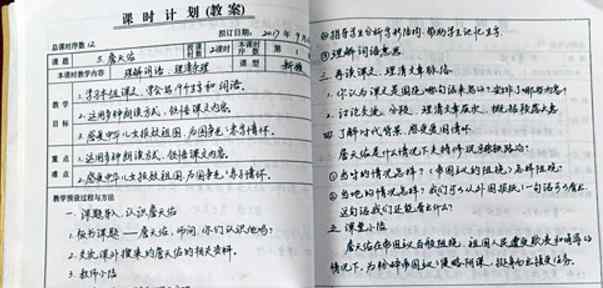 课 时 计 划 (教 案)
总课时序数 12 拟订日期: 2017年9月
课 题 5.詹天佑 2课时 本课时序 数 第 1
本课时教学内容 理解词语,理清条理 课 型 新授
教 学 目 标
1.学习本组课文,学会
生字和词语。
2.运用多种朗读方式,领悟课文内容。
3.感受中华儿女报效祖国,为国争光
情怀。
重 点 难 点
1.运用多种朗读方式,领悟课文内容。
2.感受中华儿女报效祖国,为国争光
情怀。
教学预设过程与方法
一. 课题导入,认识詹天佑
1.板书课题——詹天佑,师问:你们认识他吗?
2.交流课外搜集的詹天佑的相关资料。
3.教师小结
②指导学生分析字形结构,帮助学生记忆生字。
③理解词语意思。
三.再读课文,理清文章脉络。
1.你认为课文是围绕哪句话来写的?安排了哪些内容?
2.讨论交流,分段,理清文章层次,概括段落大意。
四 了解时代背景,感受爱国情怀
詹天佑是什么情况下主持修筑京张铁路的?
①当时的情况怎样?(帝国主义的阻挠)怎样阻挠?
②当地的情况怎样?我们可以从外国报纸一句话可以看出
这句话我们还能看出什么?
五 课堂小结
詹天佑在帝国主义百般阻挠,祖国人民遭受欺凌和
情况下,为粉碎帝国主义
阴谋,挺身而出接受任务。